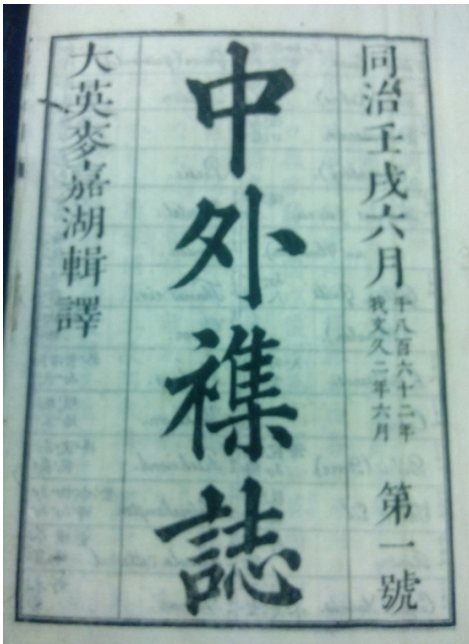 同治壬戌六月
千八百六十二年
我文久二年六月
第一號
中外襍誌
大英麥嘉湖輯譯